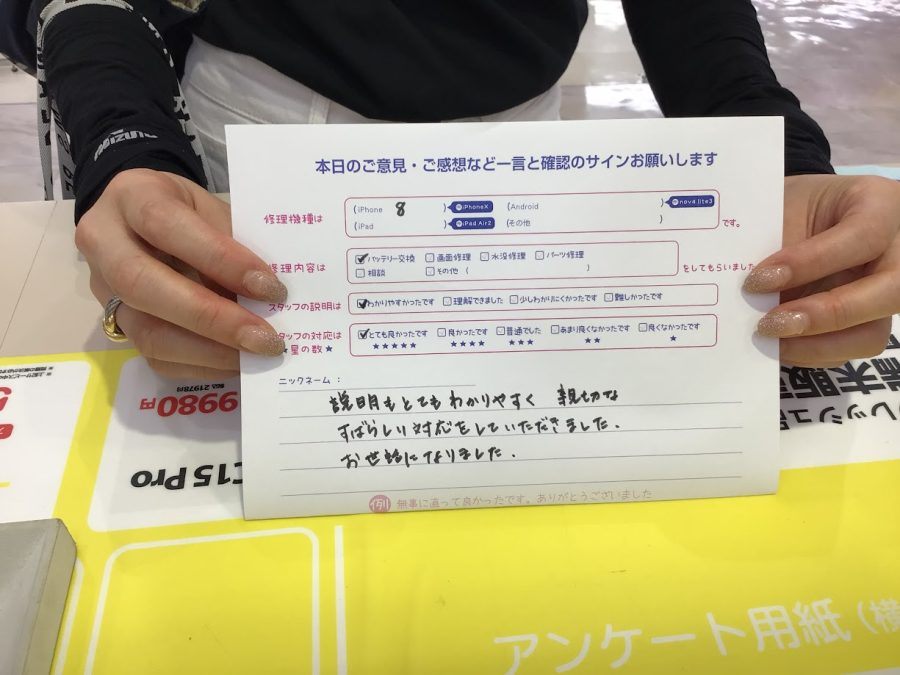 本日のご意見・ご感想など一言と確認のサインお願いします
修理機種は
(iPhone 8 ) iPhoneX (Android ) nov4 lite3
(iPad ) iPad Air2 (その他 ) です。
修理内容は
✓バッテリー交換 □画面修理 □水没修理 □パーツ修理
□相談 □その他 ( ) をしてもらいました
スタッフの説明は ✓わかりやすかったです □理解できました □少しわかりにくかったです □難しかったです
スタッフの対応は ✓とても良かったです □良かったです □普通でした □あまり良くなかったです □良くなかったです
★星の数★ ★★★★★ ★★★★ ★★★ ★★ ★
ニックネーム:
説明もとてもわかりやすく 親切な
すばらしい対応をしていただきました.
お世話になりました.
例 無事に直って良かったです。ありがとうございました
9980円
税込 21978円
15 Pro
端末販
レッシュ
アンケート用紙(横